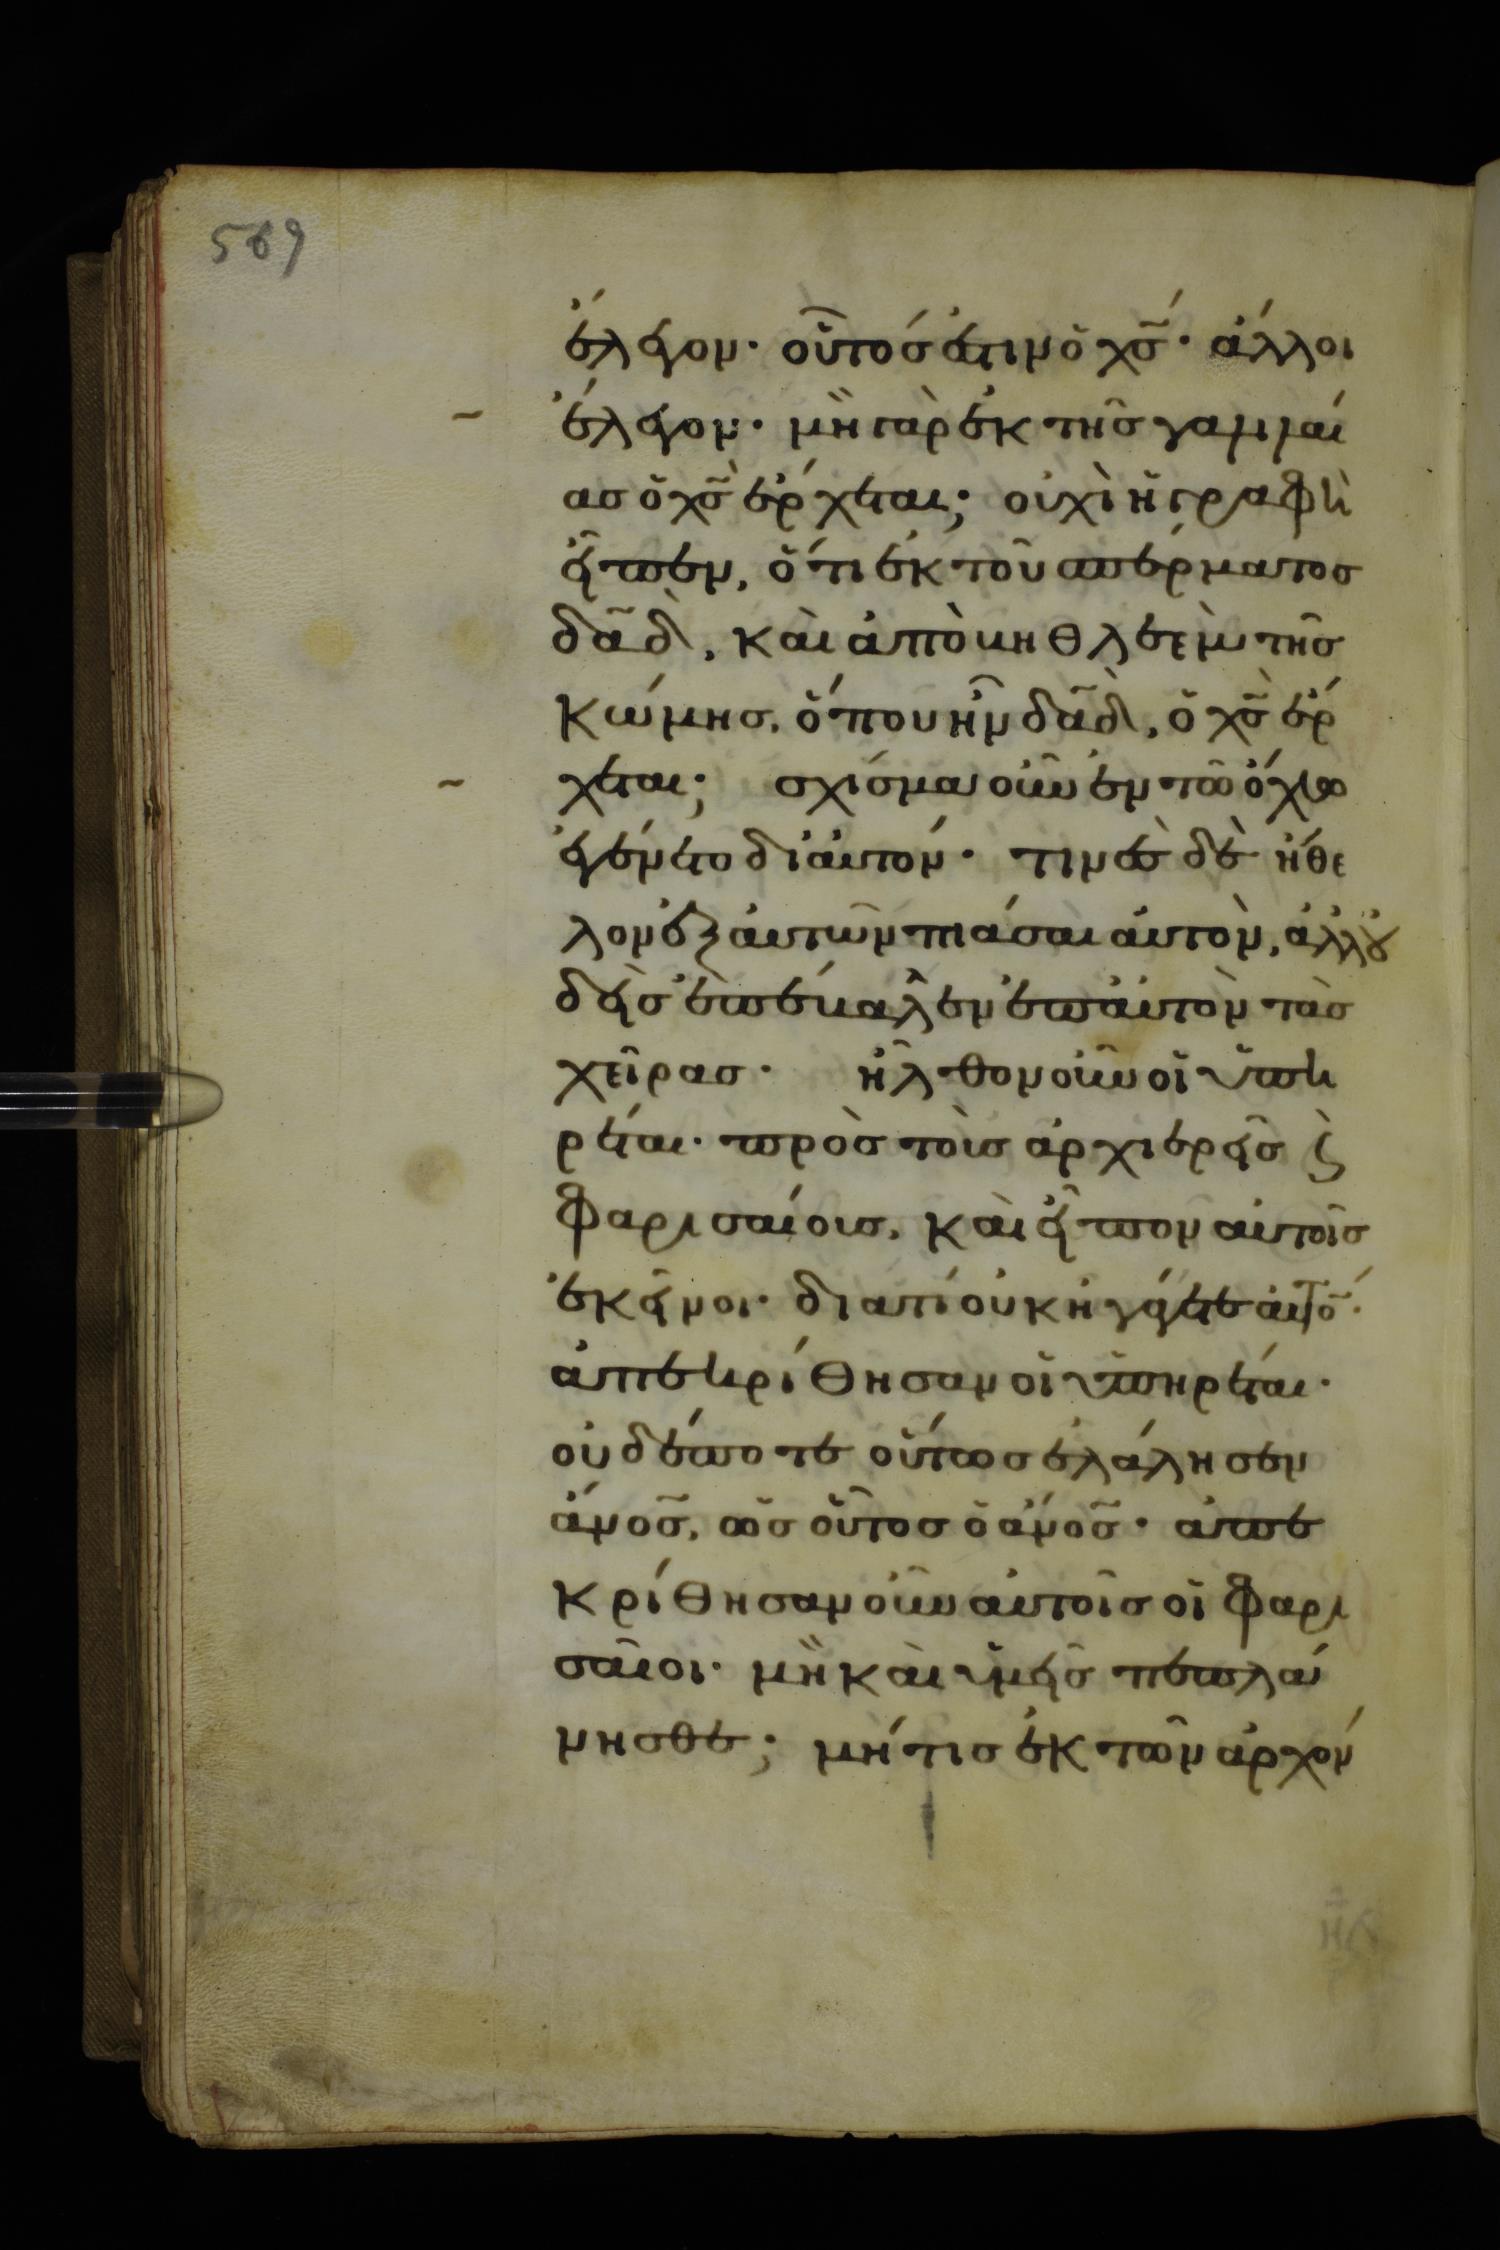 569
ἔλεγον· οὗτός ἐστιν ὁ χς̅· ἄλλοι
ἔλεγον· μὴ γὰρ ἐκ τῆς γαλιλαί
ας ὁ χς̅ ἔρχεται; οὐχὶ ἡ γραφὴ
εἶπεν, ὅτι ἐκ τοῦ σπέρματος
δα̅δ, καὶ ἀπὸ βηθλεὲμ τῆς
κώμης, ὅπου ἦν δα̅δ, ὁ χς̅ ἔρ
χεται; σχίσμα οὖν ἐν τῶ ὄχλω
ἐγένετο δι αὐτόν· τινὲς δὲ ἤθε
λον ἐξ αὐτῶν πιάσαι αὐτὸν, ἀλλ οὐ
δεὶς ἐπέβαλεν ἐπ αὐτὸν τὰς
χεῖρας· ἦλθον οὖν οἱ ὑπη
ρέται· πρὸς τοὺς ἀρχιερεῖς ϗ
φαρισαίους, καὶ εἶπον αὐτοῖς
ἐκεῖνοι· διατί οὐκ ἠγάγετε αὐτό̅·
ἀπεκρίθησαν οἱ ὑπηρέται·
οὐδέποτε οὕτως ἐλάλησεν
ἄνος̅, ὡς οὗτος ὁ ἄνος̅· ἀπε
κρίθησαν οὖν αὐτοῖς οἱ φαρι
σαῖοι· μὴ καὶ ὑμεῖς πεπλά
νησθε; μή τις ἐκ τῶν ἀρχόν